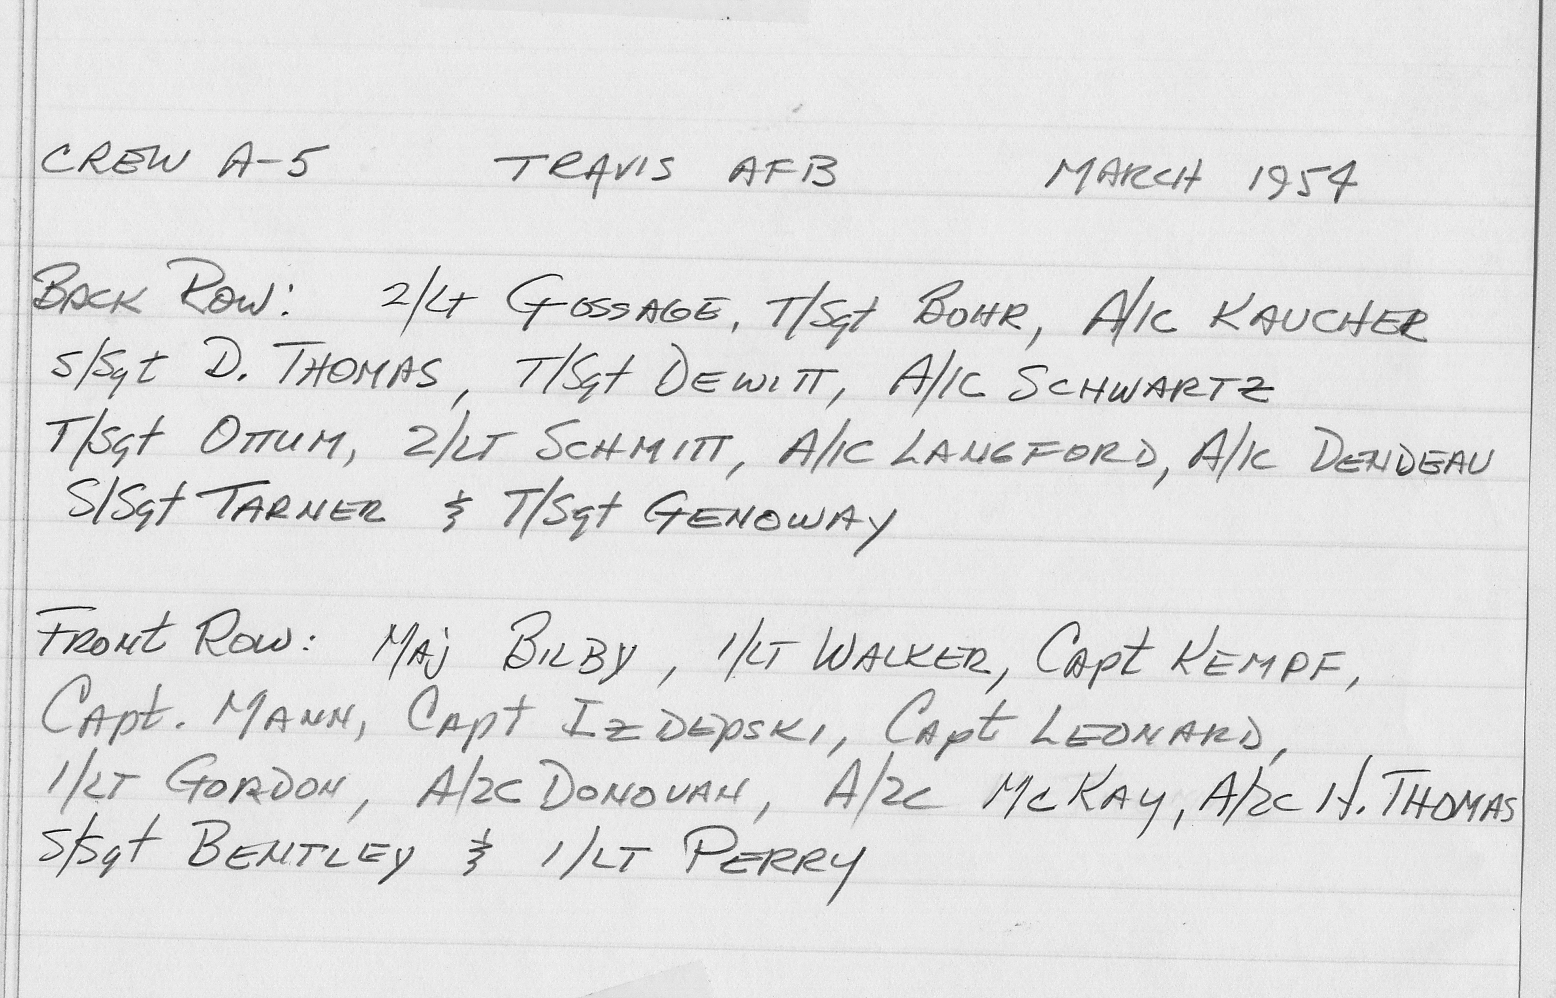 CREW A-5 TRAVIS AFB MARCH 1954
BACK ROW: 2/LT GOSSAGE, T/Sgt BOHR, A/1C KAUCHER
S/Sgt D. THOMAS, T/Sgt DEWITT, A/1C SCHWARTZ
T/Sgt OTTUM, 2/LT SCHMITT, A/1C LANGFORD, A/1C DENDEAU
S/Sgt TARNER & T/Sgt GENOWAY
FRONT ROW: MAJ BILBY, 1/LT WALKER, Capt KEMPF,
CAPt. MANN, CAPt IZDEPSKI, CAPt LEONARD,
1/LT GORDON, A/2C DONOVAN, A/2C McKAY, A/2C H. THOMAS
S/Sgt BENTLEY & 1/LT PERRY